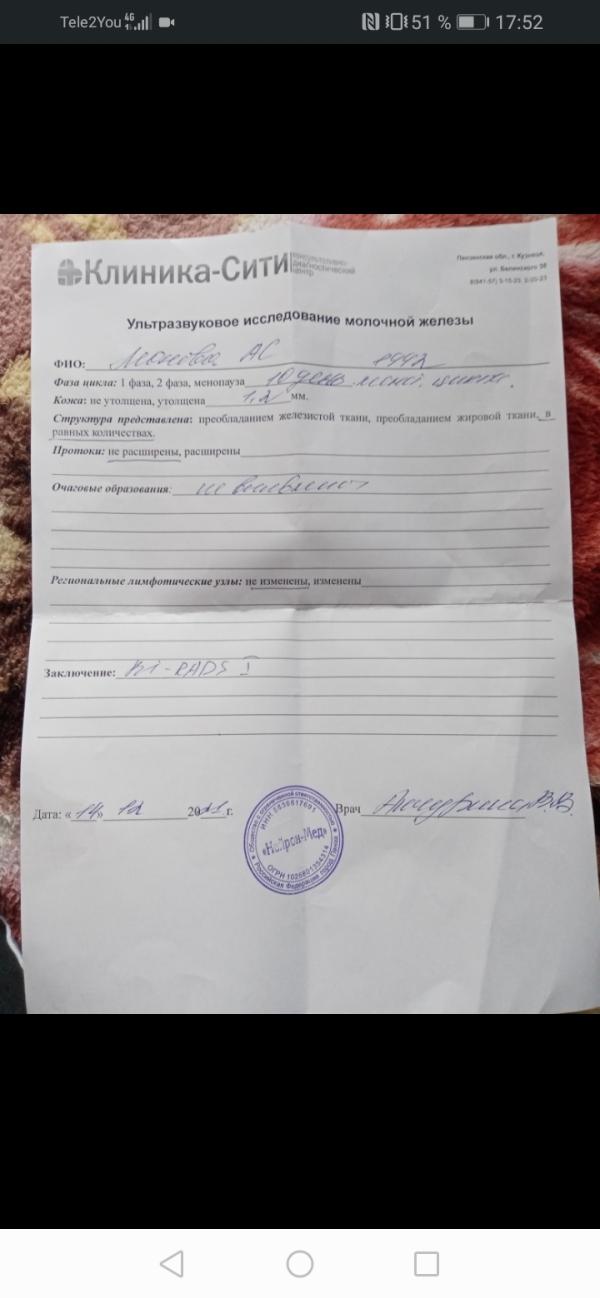 Tele2You 4G 51 % 17:52
Клиника-Сити консультативно-диагностический центр
Пензенская обл., г. Кузнецк,
ул. Белинского
Ультразвуковое исследование молочной железы
ФИО: АС
Фаза цикла: 1 фаза, 2 фаза, менопауза 10 день
Кожа: не утолщена, утолщена 1,2 мм.
Структура представлена: преобладанием железистой ткани, преобладанием жировой ткани, в
равных количествах.
Протоки: не расширены, расширены
Очаговые образования: не выявлено
Региональные лимфотические узлы: не изменены, изменены
Заключение: Bi-RADS I
Дата: «14» 12 2021 г. Врач В.В.
Общество с ограниченной ответственностью
«Нейрон-Мед»
Российская Федерация город Пенза